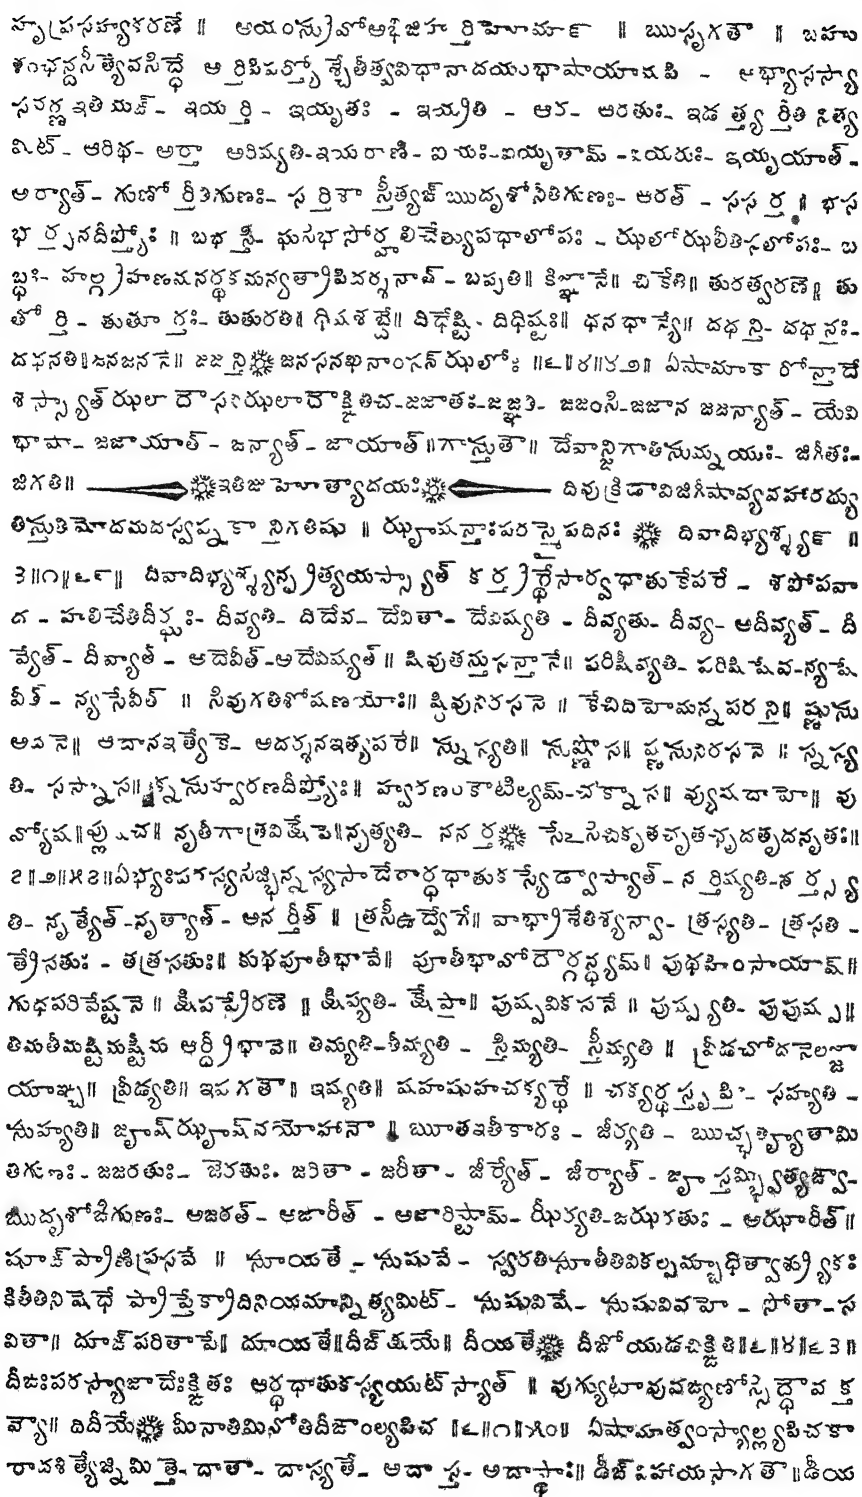 హృప్రసహ్యకరణే ॥ అయంస్రువోఅభిజిహర్తిహోమా౯ ॥ ఋసృగతౌ ॥ బహు
శంఛన్దసీత్యేవసిద్ధే అర్తిపిపర్త్యోశ్చేతీత్వవిధానాదయంభాషాయామపి - అభ్యాసస్యా
సవర్ణఇతియఙ్ - ఇయర్తి - ఇయృతః - ఇయ్రతి - ఆర - ఆరతుః - ఇడత్త్యర్తీతినిత్య
మిట్ - ఆరిథ - అర్తా అరిష్యతి - ఇయరాణి - ఐయః - ఐయృతామ్ - ఐయరుః - ఇయృయాత్ -
అర్యాత్ - గుణోర్తీతిగుణః - సర్తిశాస్తీత్యఙ్ఋదృశోఙీతిగుణః - ఆరత్ - ససర్త ॥ భస
భర్త్సనదీప్త్యోః ॥ బభస్తి - ఘసిభసోర్హలిచేత్యుపధాలోపః - ఝలోఝలీతిసలోపః - బ
బ్ధః - హల్గ్రహణమనర్థకమన్యత్రాపిదర్శనాత్ - బప్సతి॥ కిజ్ఞానే॥ చికేతి॥ తురత్వరణే॥ తు
తోర్తి - తుతూర్తః - తుతురతి॥ ధిషశబ్దే॥ దిధేష్టి - దిధిష్టః॥ ధనధాన్యే॥ దధన్తి - దధన్తః -
దధనతి॥జనజననే॥ జజన్తి జనసనఖనాంసన్ఝలోః ॥౬॥౪॥౪౨॥ ఏషామాకారోన్తాదే
శస్స్యాత్ఝలాదౌసనిఝలాదౌక్ఙితిచ - జజాతః - జజ్ఞతి - జజంసి - జజాన జజన్యాత్ - యేవి
భాషా - జజాయాత్ - జన్యాత్ - జాయాత్॥గాస్తుతౌ॥ దేవాన్జిగాతిసుమ్నయుః - జిగీతః -
జిగతి॥ ఇతిజుహోత్యాదయః దివుక్రీడావిజిగీషావ్యవహారద్యు
తిస్తుతిమోదమదస్వప్నకాన్తిగతిషు ॥ ఝౄషన్తాఃపరస్మైపదినః దివాదిభ్యశ్శ్య౯ ॥
౩॥౧॥౬౯॥ దివాదిభ్యశ్శ్యన్ప్రత్యయస్స్యాత్ కర్త్రర్థేసార్వధాతుకేపరే - శపోపవా
ద - హలిచేతిదీర్ఘః - దీవ్యతి - దిదేవ - దేవితా - దేవిష్యతి - దీవ్యతు - దీవ్య - అదీవ్యత్ - దీ
వ్యేత్ - దీవ్యాత్ - అదేవీత్ - అదేవిష్యత్॥ షివుతన్తుసన్తానే॥ పరిషీవ్యతి - పరిషిషేవ - న్యషే
వీత్ - న్యసేవీత్ ॥ స్రివుగతిశోషణయోః॥ ష్ఠివునిరసనే ॥ కేచిదిహేమన్నపరన్తి॥ ష్ణుసు
అదనే॥ ఆదానఇత్యేకే - అదర్శనఇత్యపరే॥ స్నుస్యతి॥ సుష్ణోస॥ ష్ణసునిరసనే ॥ స్నస్య
తి - సస్నాస॥ క్నసుహ్వరణదీప్త్యోః॥ హ్వరణంకౌటిల్యమ్ - చక్నాస॥ వ్యుషదాహే॥ వు
వ్యోష॥ప్లుషచ॥ నృతీగాత్రవిక్షేపే॥నృత్యతి - ననర్త సేఽసిచికృతచృతఛృదతృదనృతః॥
౭॥౨॥౫౭॥ఏభ్యఃపరస్యసిజ్భిన్నస్యసాదేరార్ధధాతుకస్యేడ్వాస్యాత్ - నర్తిష్యతి - నర్త్స్య
తి - నృత్యేత్ - నృత్యాత్ - అనర్తీత్ ॥ త్రసీఉద్వేగే॥ వాభ్రాశేతిశ్యన్వా - త్రస్యతి - త్రసతి -
త్రేసతుః - తత్రసతుః॥ కుథపూతీభావే॥ పూతీభావోదౌర్గన్ధ్యమ్॥ పుథహింసాయామ్॥
గుధపరివేష్టనే॥ క్షిపప్రేరణే ॥ క్షిప్యతి - క్షేప్తా॥ పుష్పవికసనే ॥ పుష్ప్యతి - పుపుష్ప॥
తిమతీమష్టిమష్టీమ ఆర్ద్రీభావే॥ తిమ్యతి - తీమ్యతి - స్తిమ్యతి - స్తీమ్యతి ॥ వ్రీడచోదనేలజ్జా
యాఞ్చ॥ వ్రీడ్యతి॥ ఇషగతౌ॥ ఇష్యతి॥ షహషుహచక్యర్థే ॥ చక్యర్థస్తృప్తిః - సహ్యతి -
సుహ్యతి॥ జౄష్ఝౄష్వయోహానౌ ॥ ౠతఇతీకారః - జీర్యతి - ఋచ్ఛత్యౄతామి
తిగుణః - జజరతుః - జేరతుః - జరితా - జరీతా - జీర్యేత్ - జీర్యాత్ - జౄస్తమ్భ్విత్యఙ్వా -
ఋదృశోఙిగుణః - అజరత్ - అజారీత్ - అజారిష్టామ్ - ఝీర్యతి - జఝరతుః - అఝారీత్॥
షూఙ్ప్రాణిప్రసవే ॥ సూయతే - సుషువే - స్వరతిసూతీతివికల్పమ్బాధిత్వాశ్ర్యుకః
కితీతినిషేధే ప్రాప్తేక్రాదినియమాన్నిత్యమిట్ - సుషువిషే - సుషువివహే - సోతా - స
వితా॥ దూఙ్పరితాపే॥ దూయతే॥దీఙ్క్షయే॥ దీయతే దీఙోయుడచిక్ఙితి॥౬॥౪॥౬౩॥
దీఙఃపరస్యాజాదేఃక్ఙితః ఆర్ధధాతుకస్యయుట్స్యాత్ ॥ వుగ్యుటావువఙ్యణోస్సిద్ధౌవక్త
వ్యౌ॥ దిదీయే మీనాతిమినోతిదీఙాంల్యపిచ ॥౬॥౧॥౫౦॥ ఏషామాత్వంస్యాల్ల్యపిచకా
రాదశిత్యేజ్నిమిత్తే - దాతా - దాస్యతే - అదాస్త - అదాస్థాః॥ డీఙ్విహాయసాగతౌ॥డీయ